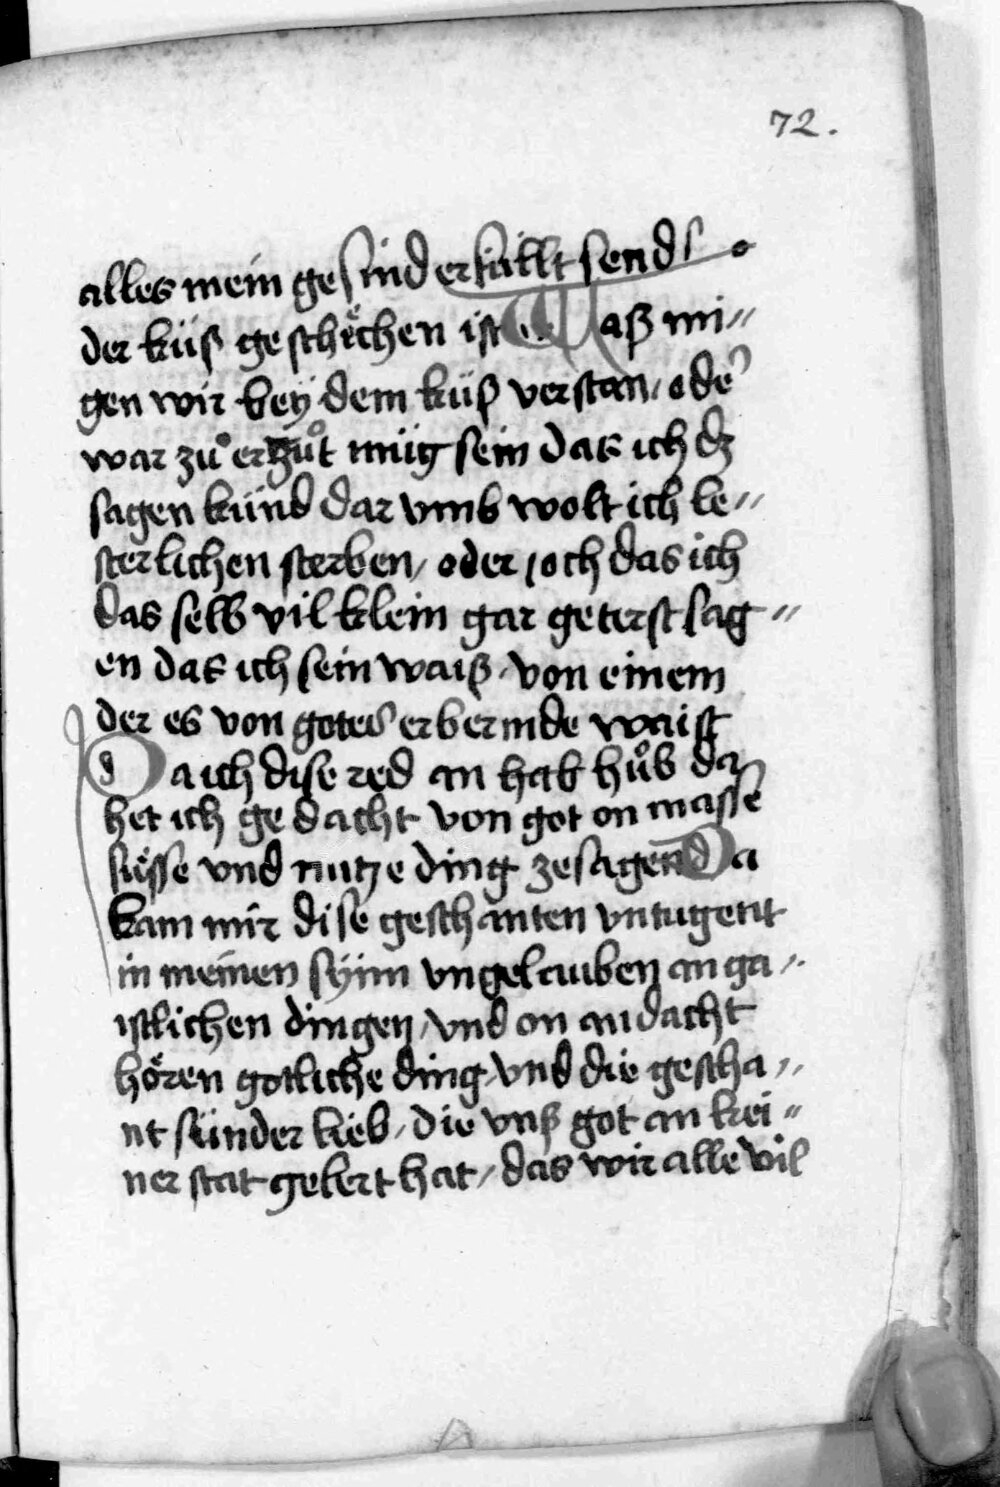 72.
alles mein gesind erfüllt send
der küß geschechen ist Waß mi〃
gen wir beÿ dem küß verstan / oder
war zuͦ er guͦt müg sein das ich dz
sagen künd dar vmb wolt ich le〃
sterlichen sterben / oder joch das ich
das selb vil klein gar geterst sag〃
en das ich sein waiß / von einem
der es von gotes erbermde waist
Da ich dise red an hab huͦb da
het ich gedacht von got on masse
süsse vnd nutze ding zesagen Da
kam mir dise geschanten vntugent
in meinen sÿnn vngelauben an ga〃
istlichen dingen / vnd on andacht
hören gotliche ding / vnd die gescha〃
nt sünder lieb / die vnß got an kei〃
ner stat gelert hat / das wir alle vil